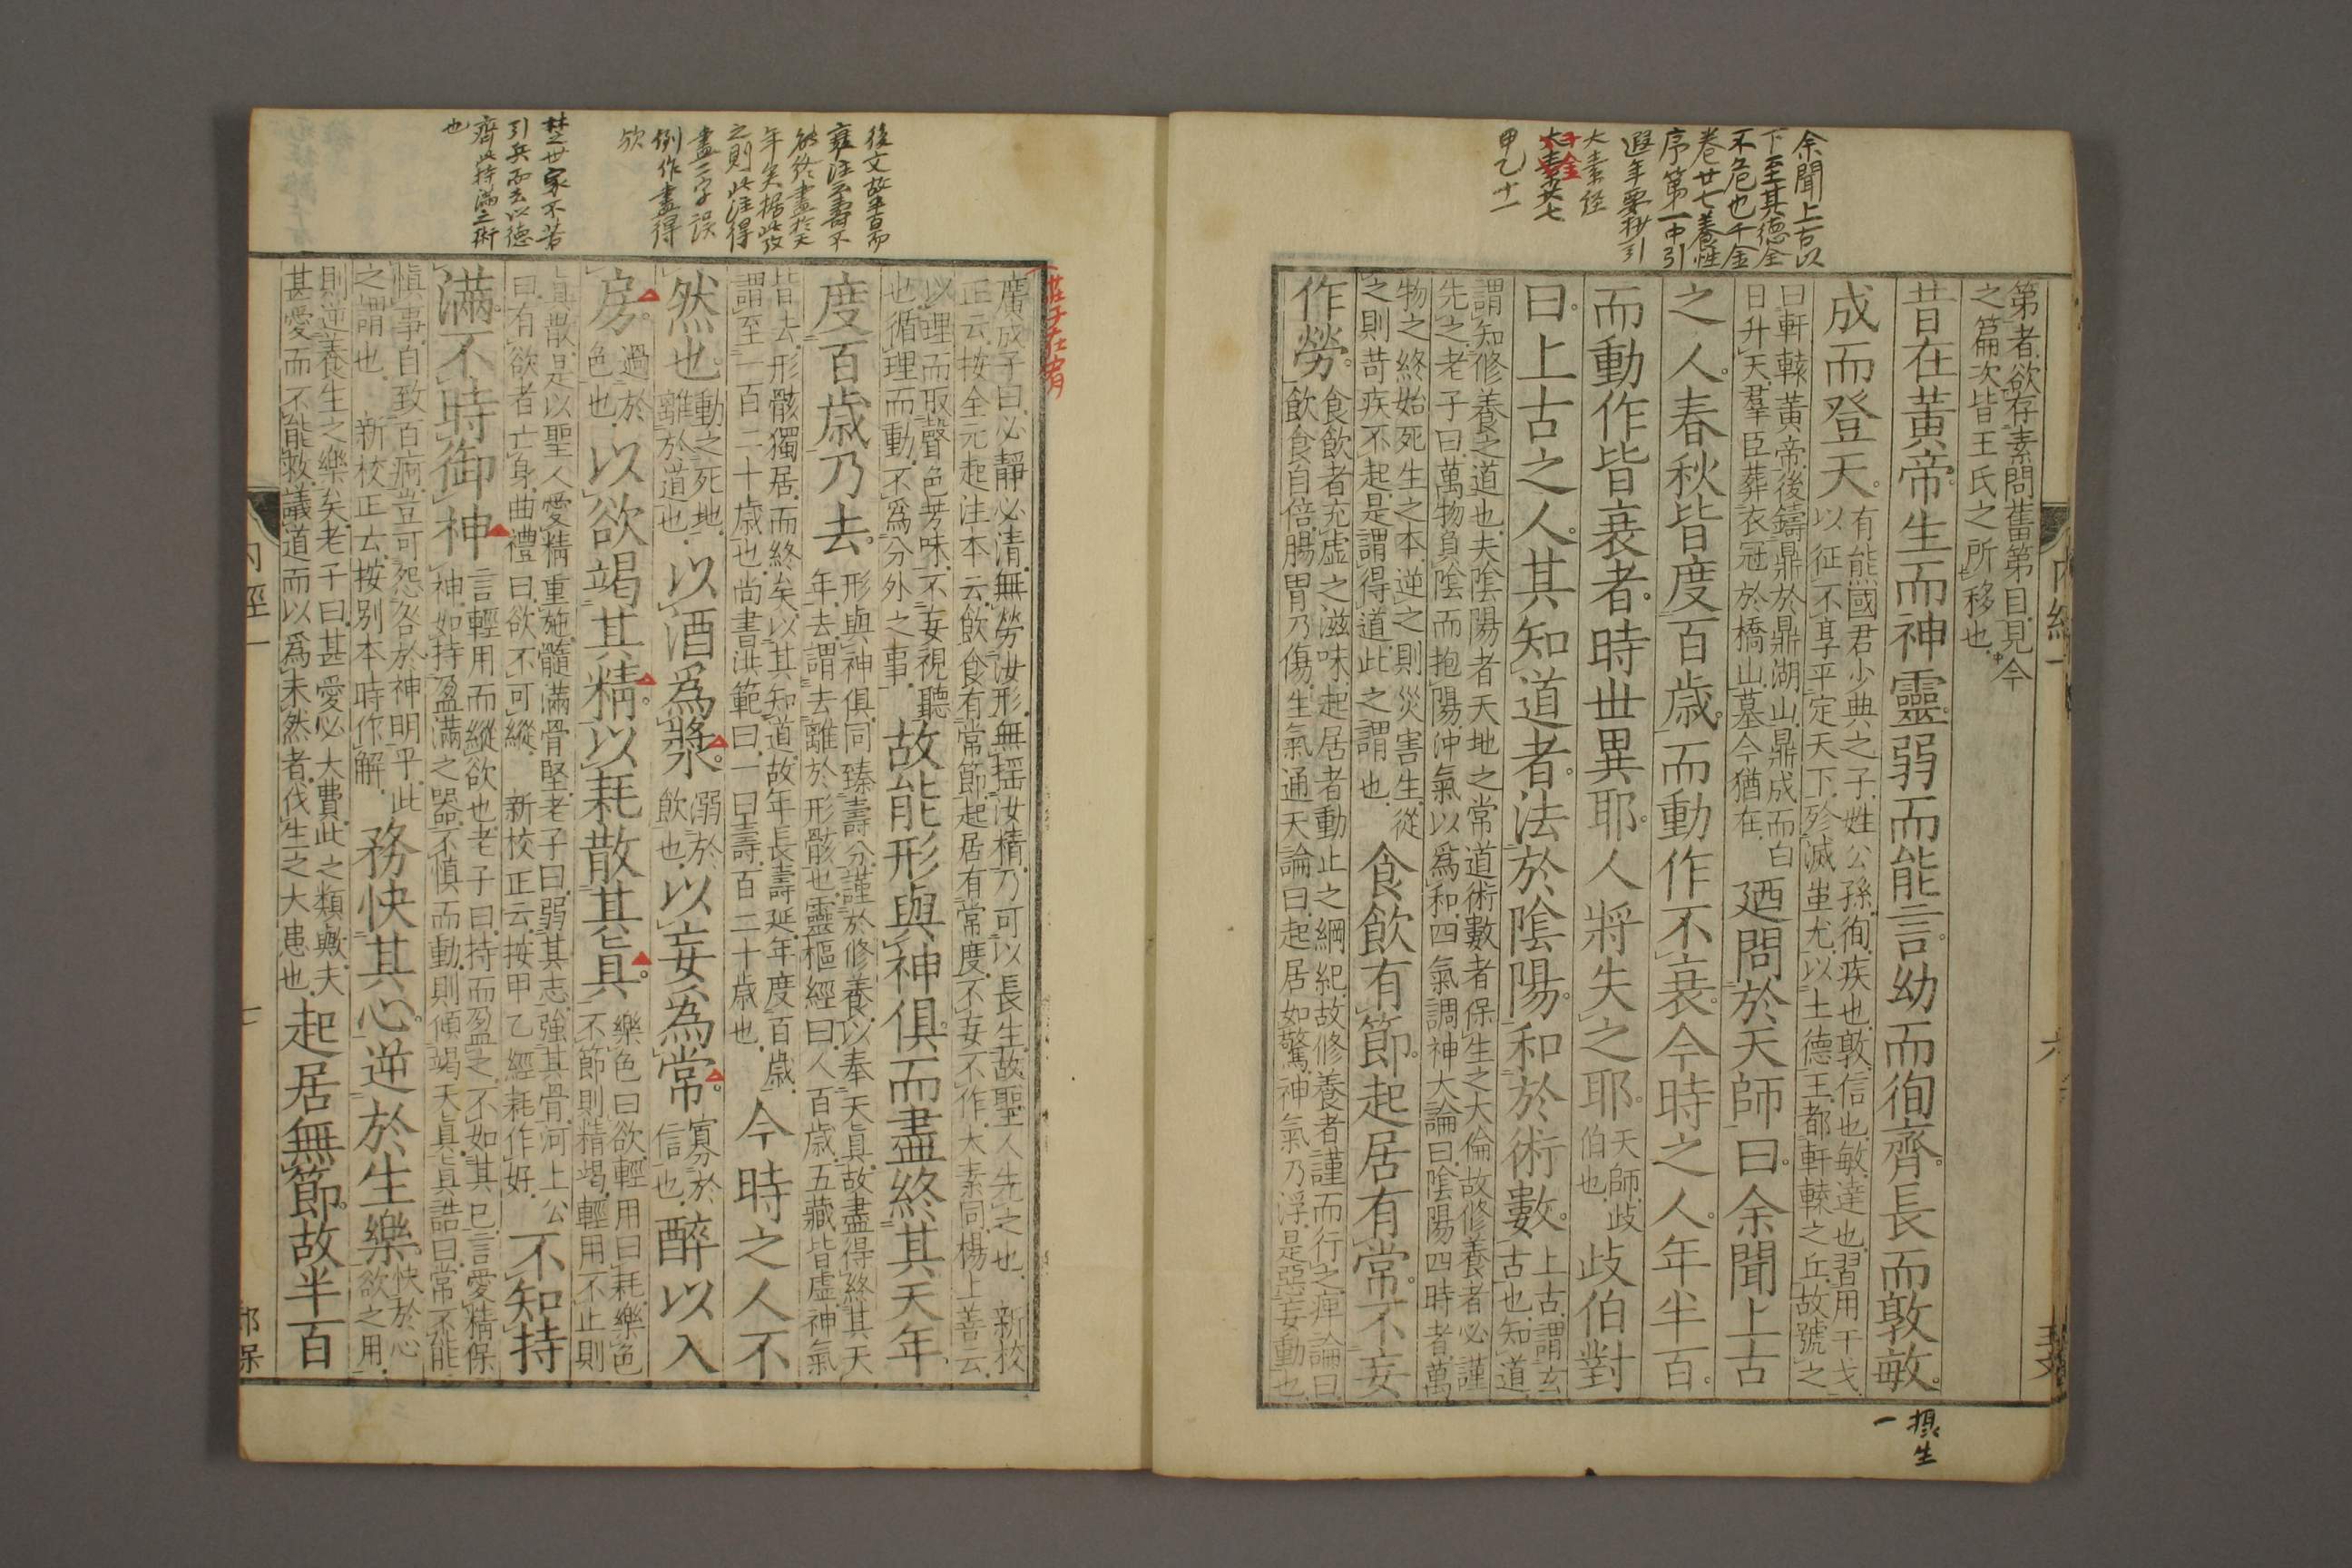 余聞上古以
下至其德全
不危也千金
卷廿七養性
序第一中引
遐年要抄引
大素徑
千金
廿七
甲乙十一
第者欲存素問舊第目見今
之篇次皆王氏之所移也
昔在黃帝生而神靈弱而能言幼而徇齊長而敦敏
成而登天
有熊國君少典之子姓公孫徇疾也敦信也敏達也習用干戈
以征不享平定天下殄滅蚩尤以土德王都軒轅之丘故號之
曰軒轅黃帝後鑄鼎於鼎湖山鼎成而白
日升天羣臣葬衣冠於橋山墓今猶在
廼問於天師曰余聞上古
之人春秋皆度百歲而動作不衰今時之人年半百
而動作皆衰者時世異耶人將失之耶
天師歧
伯也
歧伯對
曰上古之人其知道者法於陰陽和於術數
上古謂玄
古也知道
謂知修養之道也夫陰陽者天地之常道術數者保生之大倫故修養者必謹
先之老子曰萬物負陰而抱陽沖氣以為和四氣調神大論曰陰陽四時者萬
物之終始死生之本逆之則災害生從
之則苛疾不起是謂得道此之謂也
食飲有節起居有常不妄
作勞
食飲者充虛之滋味起居者動止之綱紀故修養者謹而行之痺論曰
飲食自倍腸胃乃傷生氣通天論曰起居如驚神氣乃浮是惡妄動也
攝生
一
內經一
六
莊子在宥
後文故半百而
衰注云壽不
能終盡於天
年矣据此攷
之則此注得
盡二字誤
例作盡得
欤
楚世家不若
引兵而去以德
齊此持滿之術
也
廣成子曰必靜必清無勞汝形無搖汝精乃可以長生故聖人先之也 新校
正云按全元起注本云飲食有常節起居有常度不妄不作太素同楊上善云
以理而取聲色芳味不妄視聽
也循理而動不為分外之事
故能形與神俱而盡終其天年
度百歲乃去
形與神俱同臻壽分謹於修養以奉天真故盡得終其天
年去謂去離於形骸也靈樞經曰人百歲五藏皆虛神氣
皆去形骸獨居而終矣以其知道故年長壽延年度百歲
謂至一百二十歲也尚書洪範曰一曰壽百二十歲也
今時之人不
然也
動之死地
離於道也
以酒為漿
溺於
飲也
以妄為常
寡於
信也
醉以入
房
過於
色也
以欲竭其精以耗散其真
樂色曰欲輕用曰耗樂色
不節則精竭輕用不止則
真散是以聖人愛精重施髓滿骨堅老子曰弱其志強其骨河上公
曰有欲者亡身曲禮曰欲不可縱 新校正云按甲乙經耗作好
不知持
滿不時御神
言輕用而縱欲也老子曰持而盈之不如其已言愛精保
神如持盈滿之器不慎而動則傾竭天真真誥曰常不能
慎事自致百痾豈可怨咎於神明乎此
之謂也 新校正云按別本時作解
務快其心逆於生樂
快於心
欲之用
則逆養生之樂矣老子曰甚愛必大費此之類歟夫
甚愛而不能救議道而以為未然者伐生之大患也
起居無節故半百
內經一
七